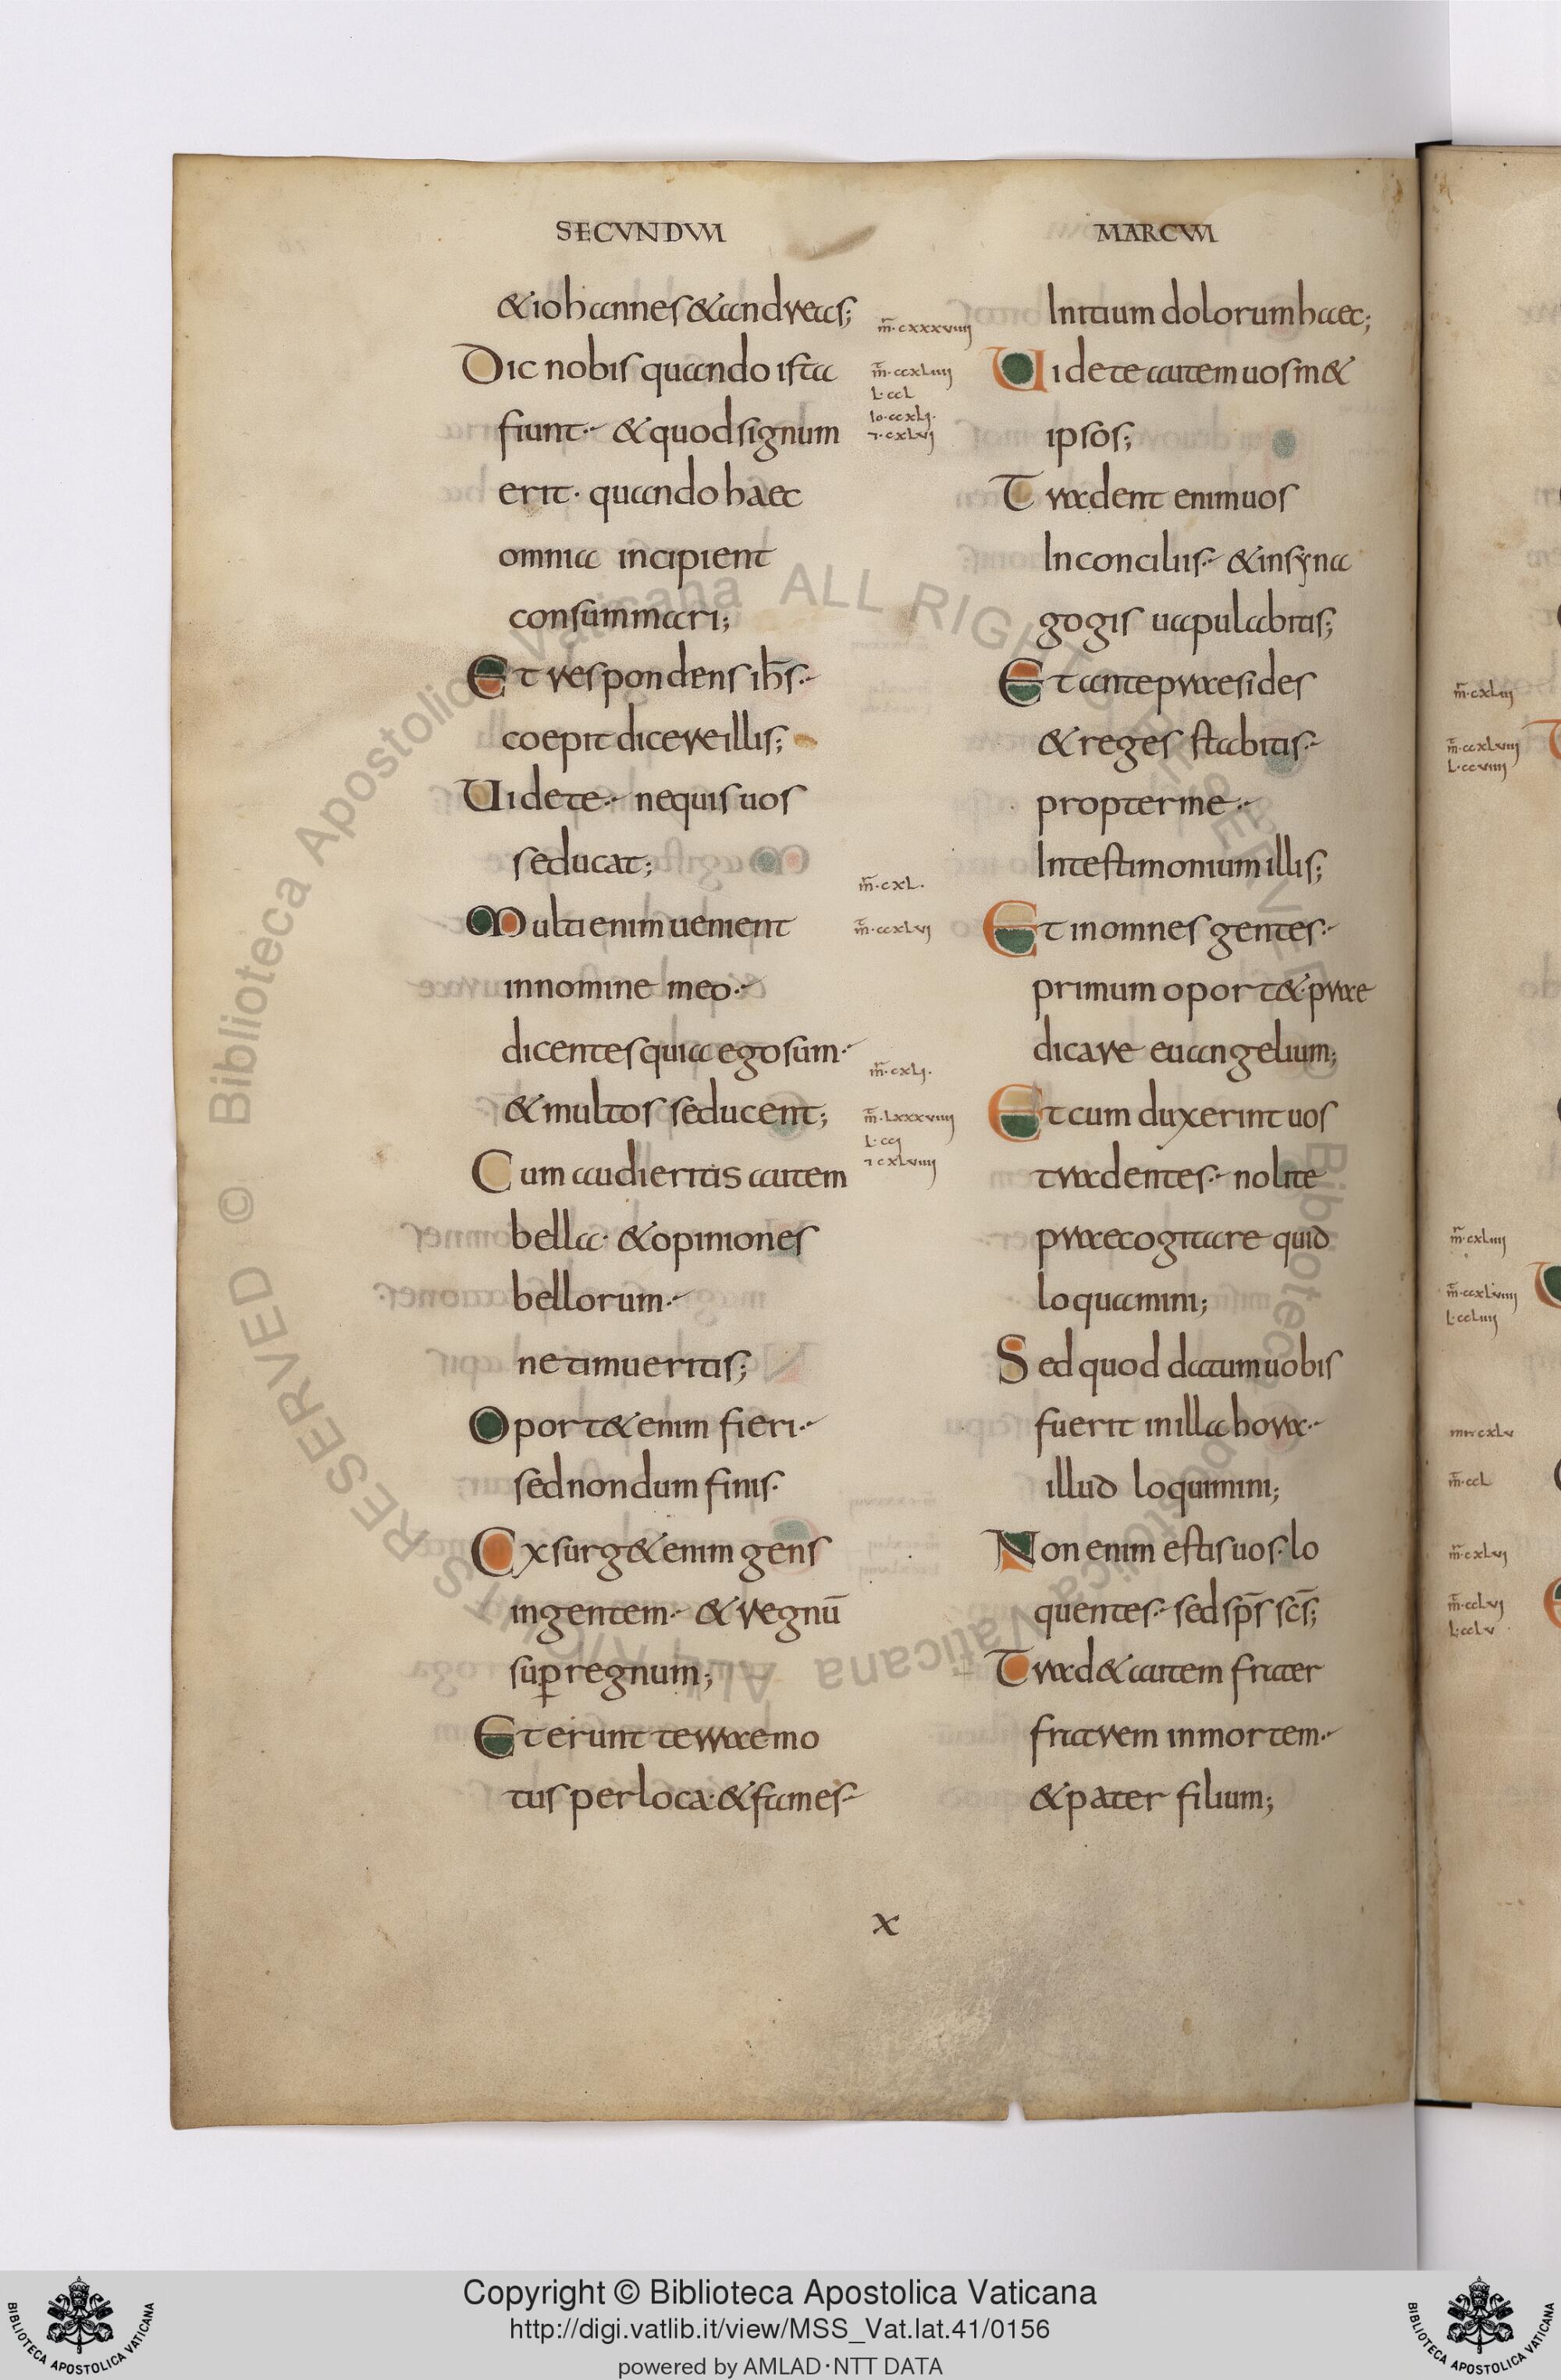 SECVNDVM
& iohannes & andreas;
Dic nobis quando ista
fiunt·- & quod signum
erit· quando haec
omnia incipient
consummari;
Et respondens ih̅s·-
coepit dicere illis;
Uidete·- nequis uos
seducat;
Multi enim uenient
in nomine meo·-
dicentes quia ego sum·-
& multos seducent;
Cum audieritis autem
bella· & opiniones
bellorum·-
ne timueritis;
Oport& enim fieri·-
sed nondum finis·
Exsurg& enim gens
in gentem·- & regnū
sup̱ regnum;
Et erunt terraemo
tus per loca·& fames·-
m̅·cxxxviiij
m̅·ccxLiiij
L·ccL
Io·ccxLj·
⁊·cxLvj
m̅·cxL·
m̅·ccxLvj
m̅·cxLj·
m̅·Lxxxviiij
L·ccj
⁊ cxLviiij
MARCVM
Initium dolorum haec;
Uidete autem uosm&
ipsos;
Tradent enim uos
In conciliis·- & in syna
gogis uapulabitis;
Et ante praesides
& reges stabitis·-
propter me·-
In testimonium illis;
Et in omnes gentes·-
primum oport&·prae
dicare euangelium;
Et cum duxerint uos
tradentes·- nolite
praecogitare quid
loquamini;
Sed quod datum uobis
fuerit in illa hora·-
illud loquimini;
Non enim estis uos·lo
quentes·- sed sp̅s sc̅s;
Trad& autem frater
fratrem in mortem·-
& pater filium;
x
m̅·cxLiij
m̅·ccxLviij
L·ccviiij
m̅·cxLiiij
m̅·ccxLviiij
L·ccLiiij
m̅·ccL
m̅·cxLvj
m̅·ccLvj
L·ccLv
© Biblioteca Apostolica Vaticana ALL RIGHTS RESERVED
© Biblioteca Apostolica Vaticana ALL RIGHTS RESERVED
Copyright © Biblioteca Apostolica Vaticana
http://digi.vatlib.it/view/MSS_Vat.lat.41/0156
powered by AMLAD·NTT DATA
BIBLIOTECA APOSTOLICA VATICANA
BIBLIOTECA APOSTOLICA VATICANA